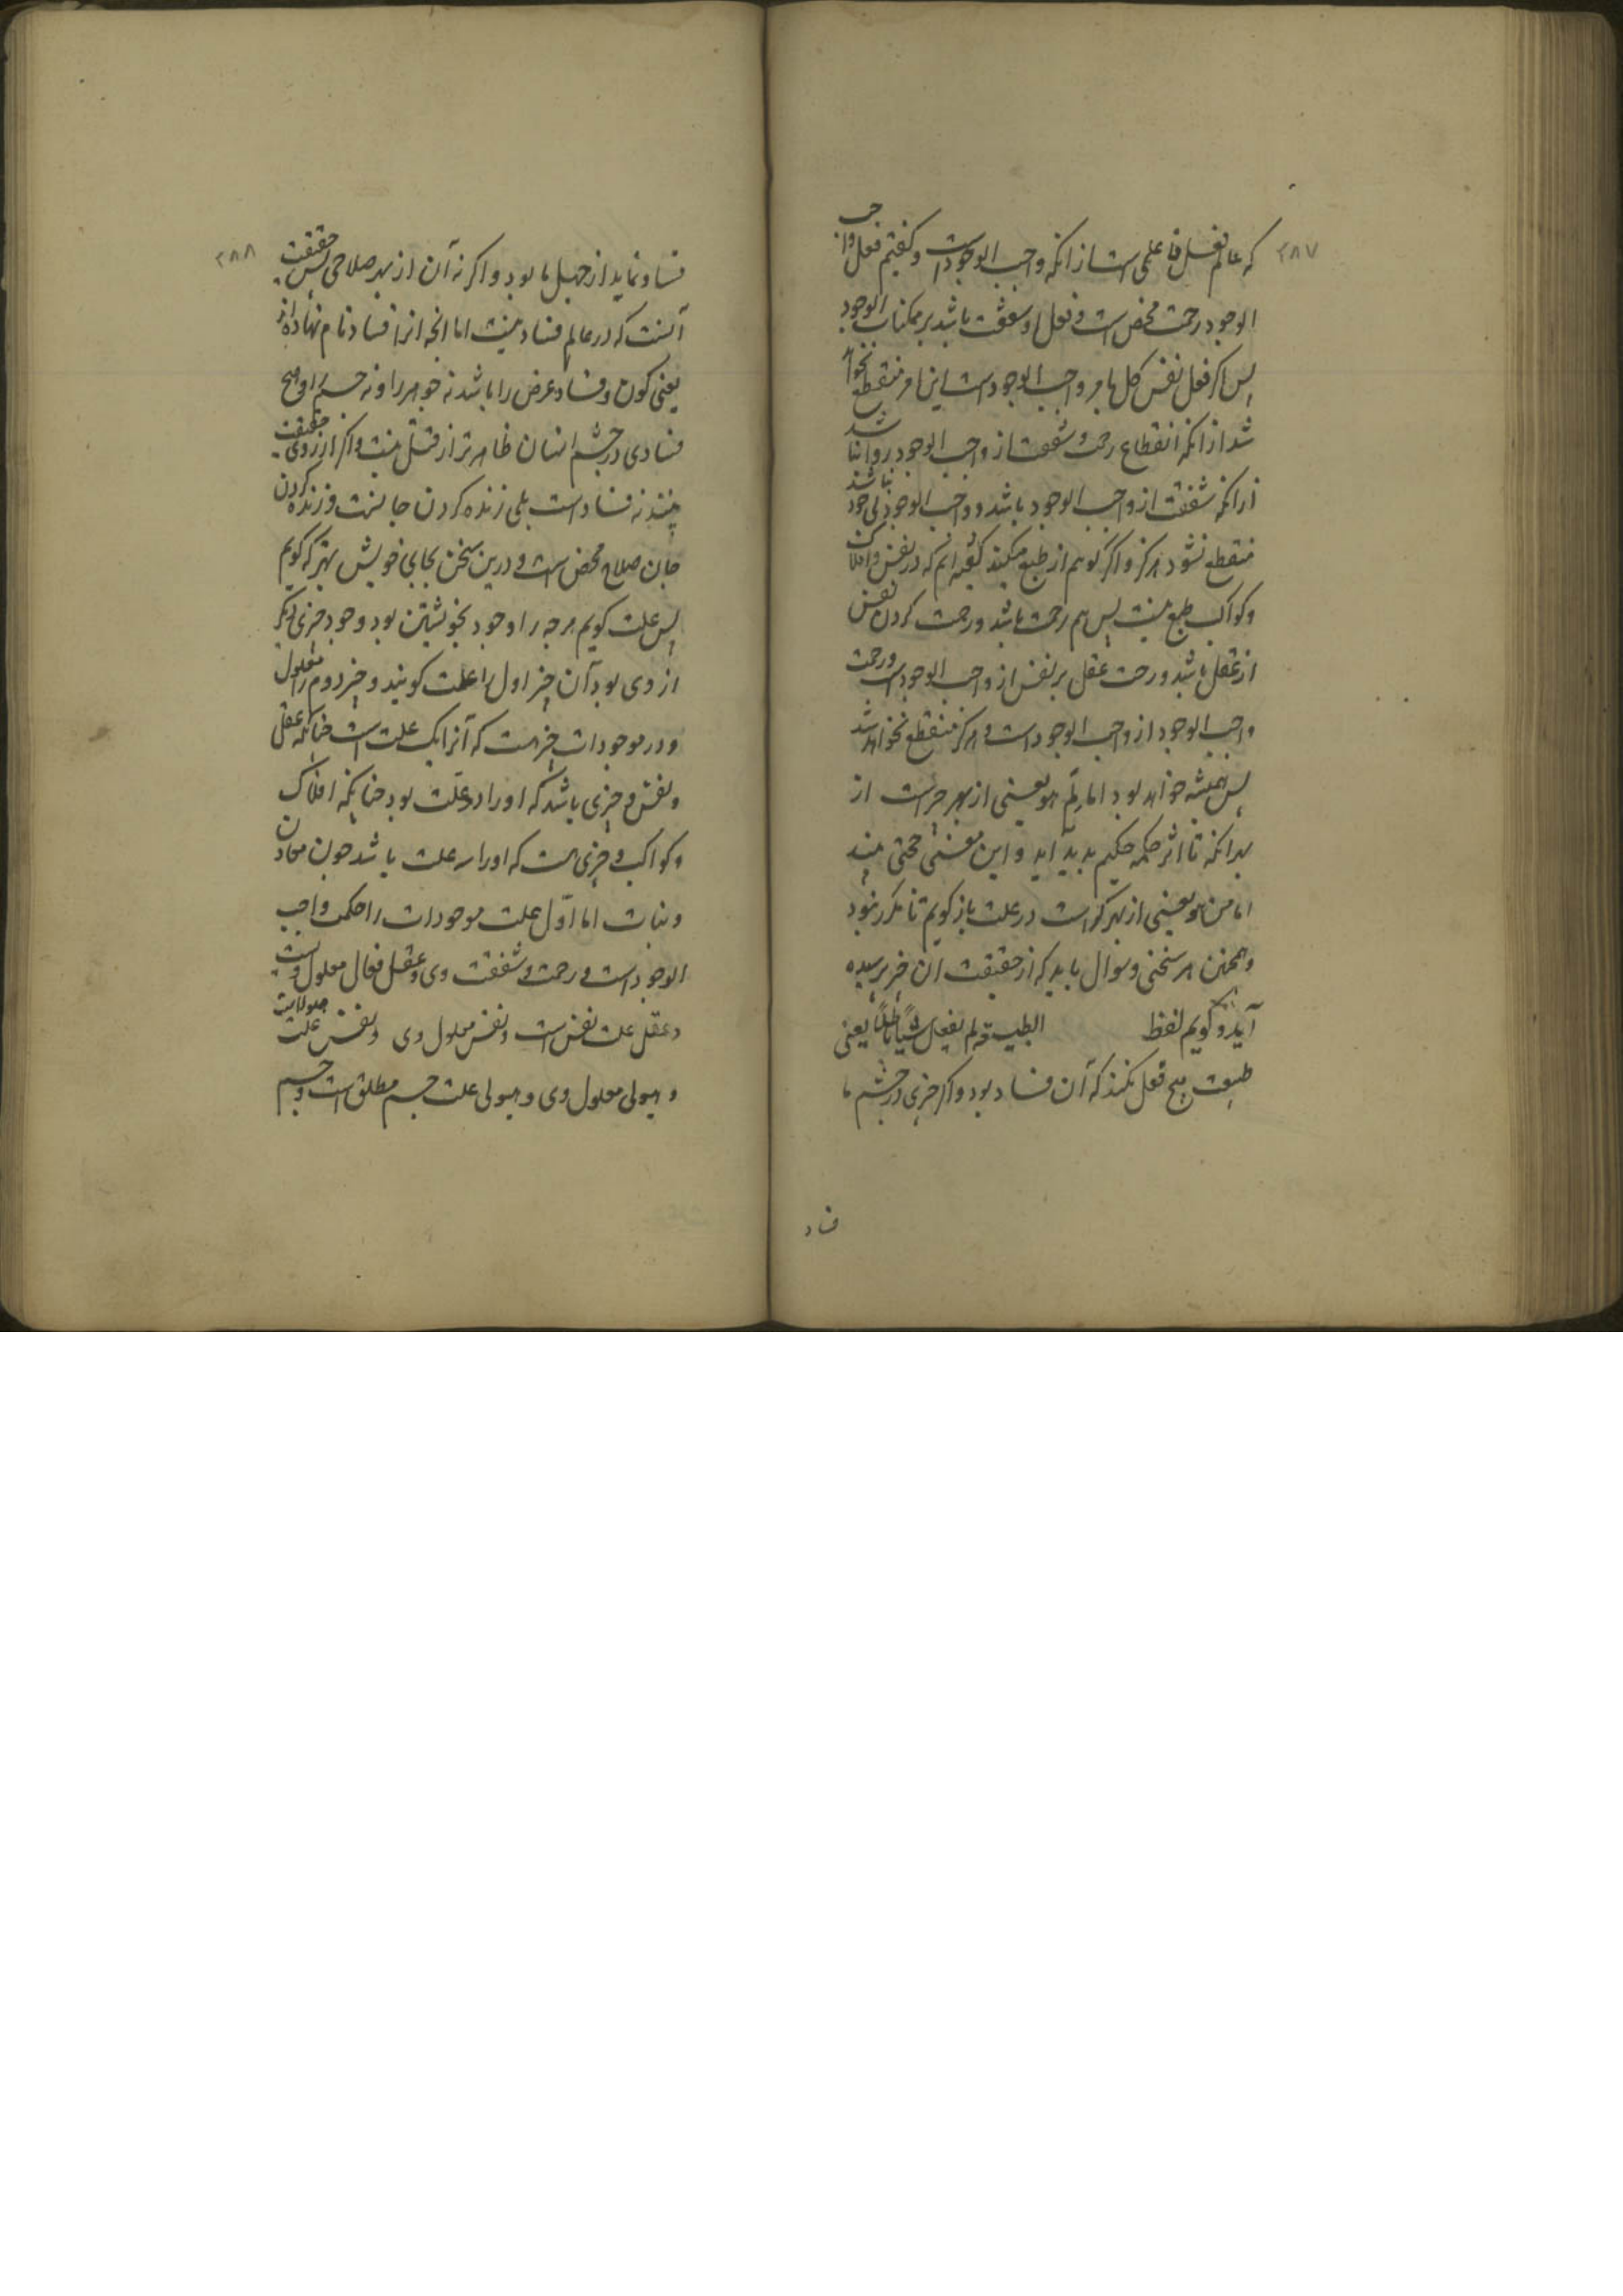 ۲۸۷
که عالم فعل فاعلی است از انکه واجب الوجود است و گفتیم فعل واجب
الوجود رحمت محض است و فعل او شفقت باشد بر ممکنات الوجود
پس اگر فعل نفس کل بامر واجب الوجود است این امر منقطع نخواهد
شد از انکه انقطاع رحمت و شفقت از واجب الوجود روا نباشد
زرانکه شفقت از واجب الوجود باشد و واجب الوجود بی جود نباشد
منقطع نشود هرگز و اگر گویم از طبع میکند گفته ایم که در نفس و افلاک
و کواکب طبع نیست پس هم رحمت باشد و رحمت کردن نفس
از عقل باشد و رحمت عقل بر نفس از واجب الوجود است و رحمت
واجب الوجود از واجب الوجود است و هرگز منقطع نخواهد شد
پس همیشه خواهد بود اما لم هو یعنی از بهر چراست از
بهر انکه تا اثر حکمه حکیم بدید اید و این معنی حجتی
اما من هو یعنی از بهر کراست در علت باز کویم تا مکرر نبود
و همچنین هر سخنی و سوال باید که از حقیقت ان چیز پرسیده
آید و گویم لفظ الطبیعة لم یفعل شیأ باطلاً یعنی
طبیعت هیچ فعل نکند که آن فساد بود و اگر چیزی در چشم ما
فساد
۲۸۸
فساد نماید از جهل ما بود و اگر نه آن از بهر صلاحی پس حقیقت
آنست که در عالم فساد نیست اما انچه انرا فساد نام نهاده اند
یعنی کون و فساد عرض را باشد نه جوهر را و نه جسم را و هیچ
فسادی در چشم انسان ظاهرتر از قتل نیست و اگر از روی حقیقت
بینند نه فساد است بلی زنده کردن جانست و زنده کردن
جان صلاح محض است و درین سخن بجای خویش بهتر که گویم
پس علت کویم هرچه را وجود بخویشتن بود و وجود چیزی دیگر
از وی بود آن چیز اول را علت کویند و چیز دوم را معلول
و در موجودات چیز هست که آنرا یک علت است چنانکه عقل
و نفس و چیزی باشد که اورا دو علت بود چنانکه افلاک
و کواکب و چیزی هست که اورا سه علت باشد چون معادن
و نبات اما اوّل علت موجودات را حکمت واجب
الوجود است و رحمت و شفقت وی و عقل فعال معلول ویست
و عقل علت نفس است و نفس معلول وی و نفس علت هیولاست
و هیولی معلول وی و هیولی علت جسم مطلق است و جسم